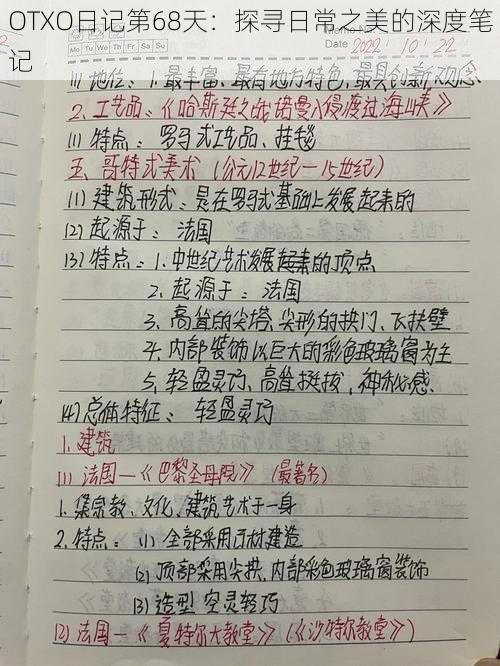 OTXO日记第68天：探寻日常之美的深度笔
记
Date 2022 / 10 / 21
(1) 地位：1.最丰富、最有地方特色、最具创新观念
2.工艺品：《哈斯廷之战诺曼人侵渡过海峡》
(1) 特点：罗马式工艺品、挂毯
五、哥特式美术（公元12世纪—15世纪）
(1) 建筑形式：是在罗马式基础上发展起来的
(2) 起源于：法国
(3) 特点：1.中世纪艺术发展起来的顶点
2.起源于：法国
3.高耸的尖塔、尖形的拱门、飞扶壁
4.内部装饰以巨大的彩色玻璃窗为主
5.轻盈灵巧、高耸挺拔，神秘感.
(4) 总体特征：轻盈灵巧
1.建筑
(1) 法国—《巴黎圣母院》（最著名）
1.集宗教、文化、建筑艺术于一身
2.特点：(1) 全部采用石材建造
(2) 顶部采用尖拱，内部彩色玻璃窗装饰
(3) 造型空灵轻巧
(2) 法国—《夏特尔大教堂》（《沙特尔教堂》）